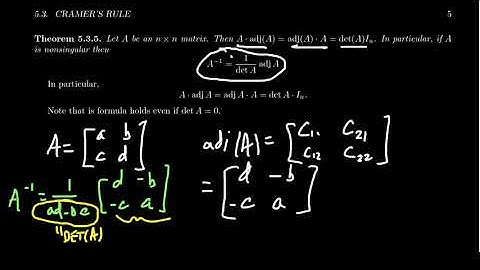 5.3. CRAMER'S RULE 5
Theorem 5.3.5. Let A be an n × n matrix. Then A · adj(A) = adj(A) · A = det(A)Iₙ. In particular, if A
is nonsingular then
A⁻¹ = 1/det A adj A
In particular,
A · adj A = adj A · A = det A · Iₙ.
Note that is formula holds even if det A = 0.
A = [a b
c d]
adj(A) = [C₁₁ C₂₁
C₁₂ C₂₂]
= [d -b
-c a]
A⁻¹ = 1/ad-bc [d -b
-c a]
"DET(A)